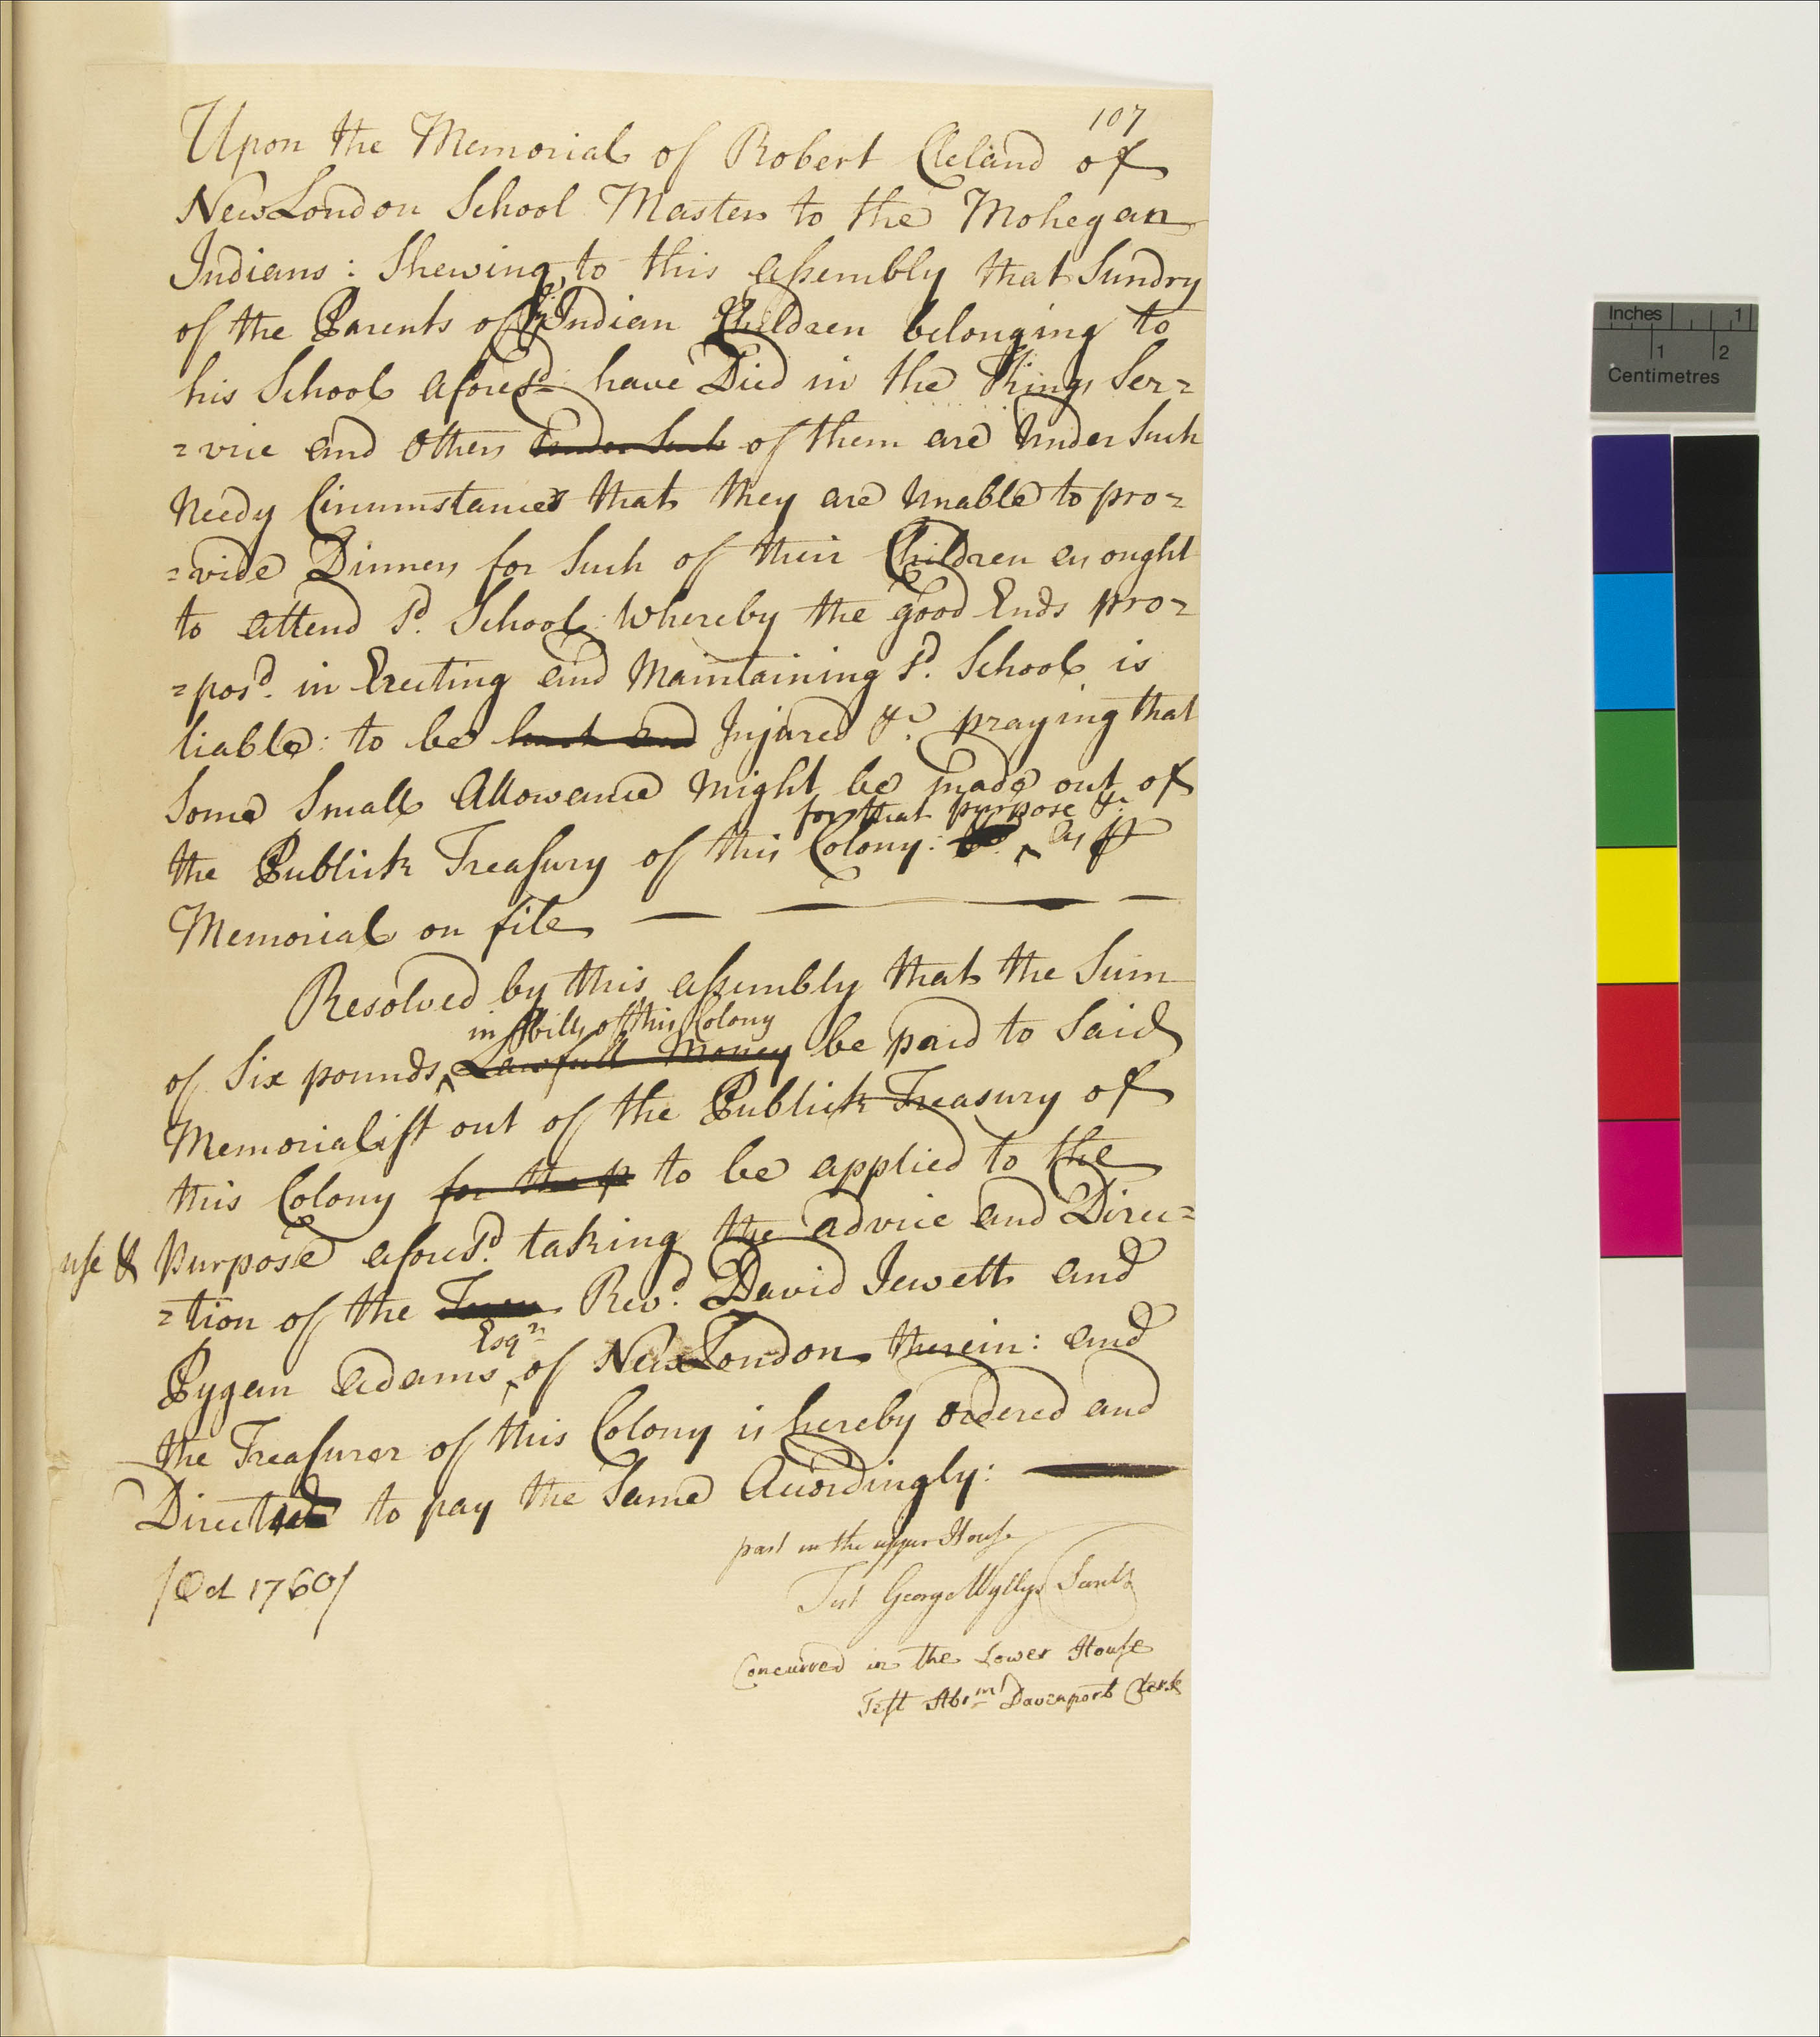 107
Upon the Memorial of Robert Cleland of
New London School Master to the Mohegan
Indians: Shewing to this assembly that Sundry
of the Parents of Indian Children belonging to
his School aforesd have Died in the Kings Ser=
=vice and others under Such of them are under Such
needy Circumstances that they are unable to pro=
=vide Dinners for Such of their Children as ought
to attend sd. School: whereby the good Ends pro=
=posd. in Erecting and Maintaining sd. School is
liable: to be hurt and Injured &c praying that
Some Small Allowance might be made out of
for that purpose &c.
the Publick Treasury of this Colony: as pr
Memorial on file
Resolved by this assembly that the Sum
in bills of this Colony
of Six pounds Lawfull Money be paid to Said
Memorialist out of the Publick Treasury of
this Colony for the p to be applied to the
use & purpose aforesd. taking the advice and Direc=
=tion of the Revd. David Jewett and
Esqr
Pygan Adams of New London therein: and
the Treasurer of this Colony is hereby ordered and
Directed to pay the Same Accordingly:
past in the upper House
/Oct 1760/
Test George Wyllys Secretr
Concurred in the Lower House
Test Abrm Davenport Clerk
Inches 1
1 2
Centimetres